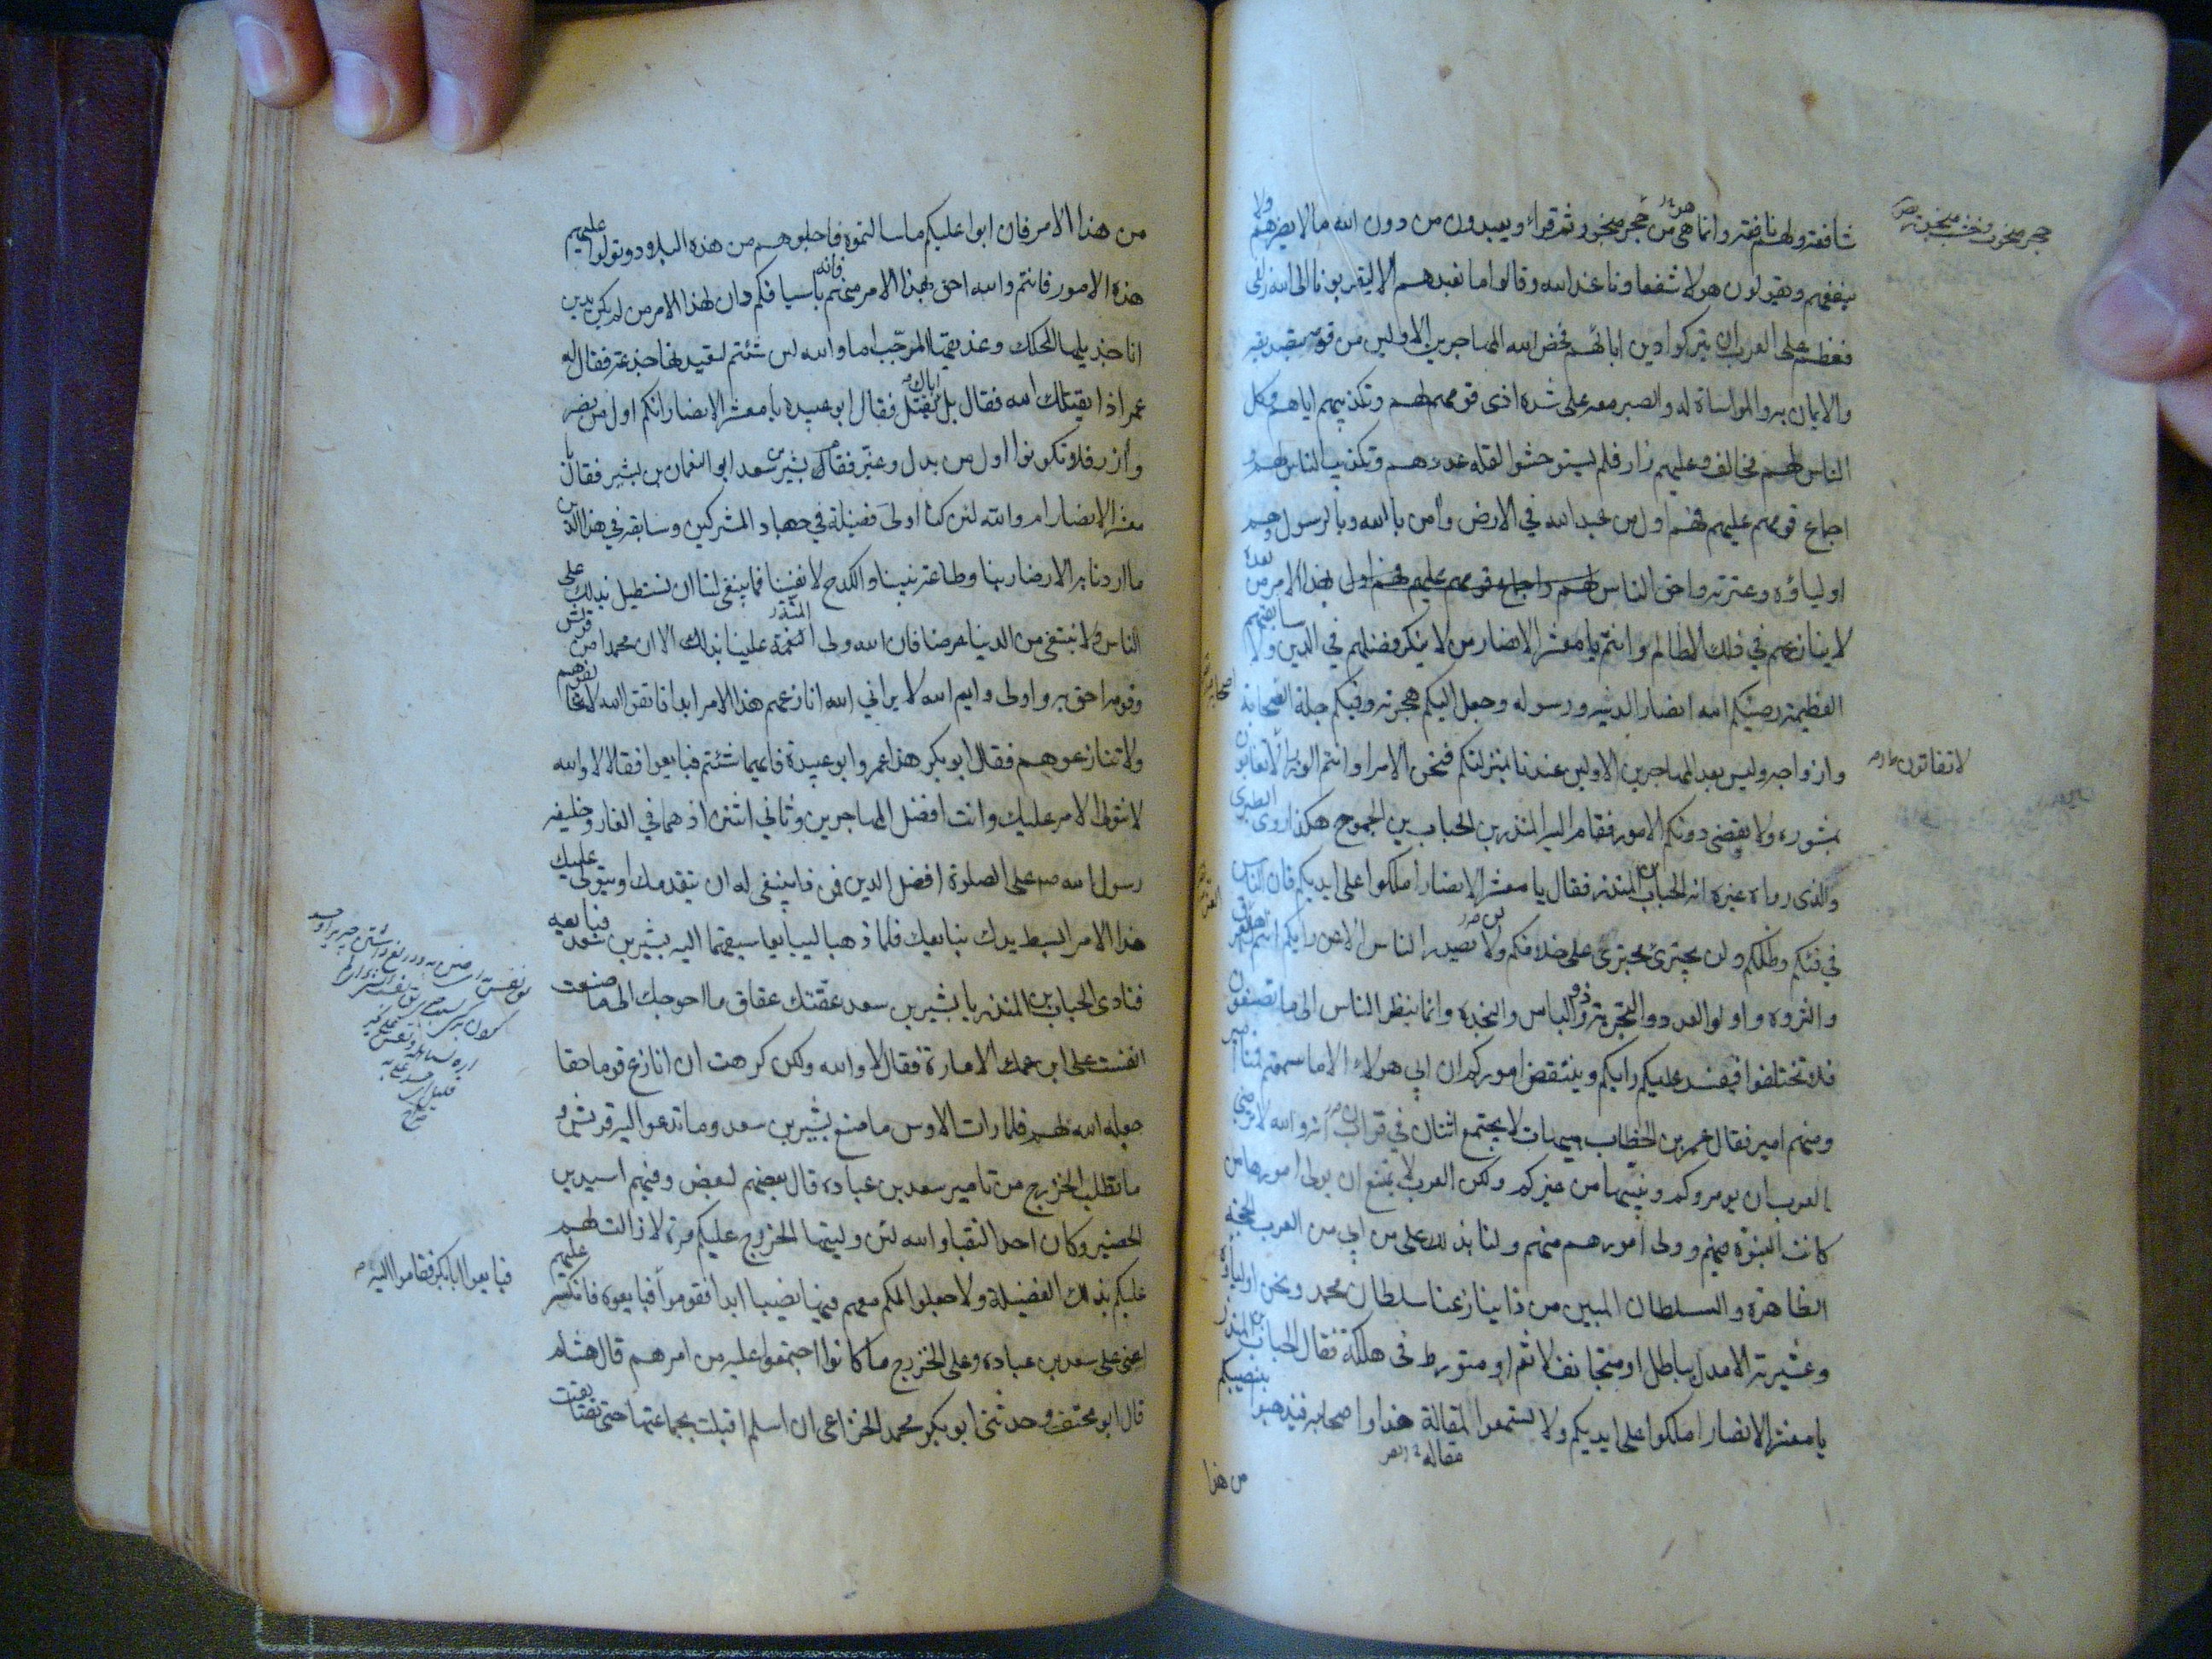 شافعة ولهم نافعة وانما هي من حجر منحور ثم قراء ويعبدون من دون الله ما لا يضرهم ولا
ينفعهم ويقولون هولا شفعاونا عند الله وقالوا ما نعبدهم الا ليقربونا الى الله زلفى
فعظم على العرب ان يتركوا دين ابائهم فخص الله المهاجرين الاولين من قومه بتصديقه
والايمان به والمواساة له والصبر معه على شده اذى قومهم لهم وتكذيبهم اياهم وكل
الناس لهم مخالف وعليهم زار فلم يستوحشوا لقله عددهم وتكذيب الناس لهم و
اجماع قومهم عليهم فهم اول من عبد الله في الارض وأمن بالله وبالرسول وهم
اولياؤه وعترته واحق الناس لهم واجماع قومهم عليهم فهم اول بهذا الامر من بعده
لا ينازعهم في ذلك الا ظالم وانتم يا معشر الانصار من لا ينكر فضلهم في الدين ولا سابقتهم
العظيمة رضيكم الله انصارا لدينه ورسوله وجعل اليكم هجرته وفيكم جلة اصحابه
وازواجه وليس بعد المهاجرين الاولين عندنا بمنزلتكم فنحن الامرا وانتم الوزرا لا تفاتون
بمشوره ولا يقضى دونكم الامور فقام اليه المنذر بن الحباب بن الجموح هكذا روى الطبرى
والذى رواه غيره انه الحباب بن المنذر فقال يا معشر الانصار املكوا على ايديكم فان الناس
في فئكم وظلكم ولن يجترئ مجترئ على خلافكم ولا يصدر الناس الا عن رايكم انتم اهل العز
والثروه واولوا العدد والتجربة وذو الباس والنجده وانما ينظر الناس الى ما تصنعون
فلا تختلفوا فيفسد عليكم رايكم وينتقض اموركم ان ابى هولاء الا ما سمعتم فمنا امير
ومنهم امير فقال عمر بن الخطاب هيهات لا يجتمع اثنان في قرن انه والله لا ترضى
العرب ان يومروكم ونبيها من غيركم ولكن العرب لا يمتنع ان يولى امورها من
كانت النبوة منهم وولى امورهم منهم ولنا بذلك على من ابى من العرب الحجة
الظاهرة والسلطان المبين من ذا ينازعنا سلطان محمد ونحن اولياؤه
وعشيرته الا مدل بباطل او متجانف لاثم او متورط فى هلكة فقال الحباب بن المنذر
يا معشر الانصار املكوا على ايديكم ولا تستمعوا لمقالة هذا واصحابه فيذهبوا بنصيبكم
من هذا
لا تفاتون
من هذا الامر فان ابوا عليكم ما سالتموه فاجلوهم من هذه البلاد وتولوا عليهم
هذه الامور فانتم والله احق بهذا الامر منهم فانه باسيافكم دان لهذا الامر من لم يكن يدين
انا جذيلها المحكك وعذيقها المرجّب اما والله لئن شئتم لنعيدنها جذعة فقال له
عمر اذا يقتلك الله فقال بل اياك يقتل فقال ابو عبيده يا معشر الانصار انكم اول من نصر
وأزر فلا تكونوا اول من بدل وغير فقام بشير بن سعد ابو النعمان بن بشير فقال يا
معشر الانصار ام والله لئن كنا اولى فضيلة في جهاد المشركين وسابقه في هذا الدين
ما اردنا به الا رضا ربنا وطاعة نبينا والكدح لانفسنا فما ينبغى لنا ان نستطيل بذلك على
الناس ولا نبتغى من الدنيا عرضا فان الله ولى النعمة علينا بذلك الا ان محمدا من قريش
وقومه احق به واولى وايم الله لا يراني الله انازعهم هذا الامر ابدا فاتقوا الله ولا تخالفوهم
ولا تنازعوهم فقال ابو بكر هذا عمر وابو عبيدة فايهما شئتم فبايعوا فقالا لا والله
لا نتولى الامر عليك وانت افضل المهاجرين وثاني اثنين اذ هما في الغار وخليفه
رسول الله على الصلوة افضل الدين فمن ذا ينبغى له ان يتقدمك او يتولى عليك
هذا الامر ابسط يدك نبايعك فلما ذهبا ليبايعا سبقهما اليه بشير بن سعد فبايعه
فنادى الحباب بن المنذر يا بشير بن سعد عقتك عقاق ما احوجك الى ما صنعت
انفست على ابن عمك الامارة فقال لا والله ولكن كرهت ان انازع قوما حقا
جعله الله لهم فلما رات الاوس ما صنع بشير بن سعد وما تدعو اليه قريش و
ما تطلب الخزرج من تامير سعد بن عباده قال بعضهم لبعض وفيهم اسيد بن
الحضير وكان احد النقبا والله لئن وليتها الخزرج عليكم مرة لا زالت لهم
عليكم بذلك الفضيلة ولا جعلوا لكم معهم فيها نصيبا ابدا فقوموا فبايعوه فانكسر
اعنى على سعد بن عباده وعلى الخزرج ما كانوا اجتمعوا عليه من امرهم قال هشام
قال ابو مخنف وحدثنى ابو بكر محمد الخزاعى ان اسلم اقبلت بجماعتها حتى تضايقت
فبايعوا ابا بكر فقاموا اليه